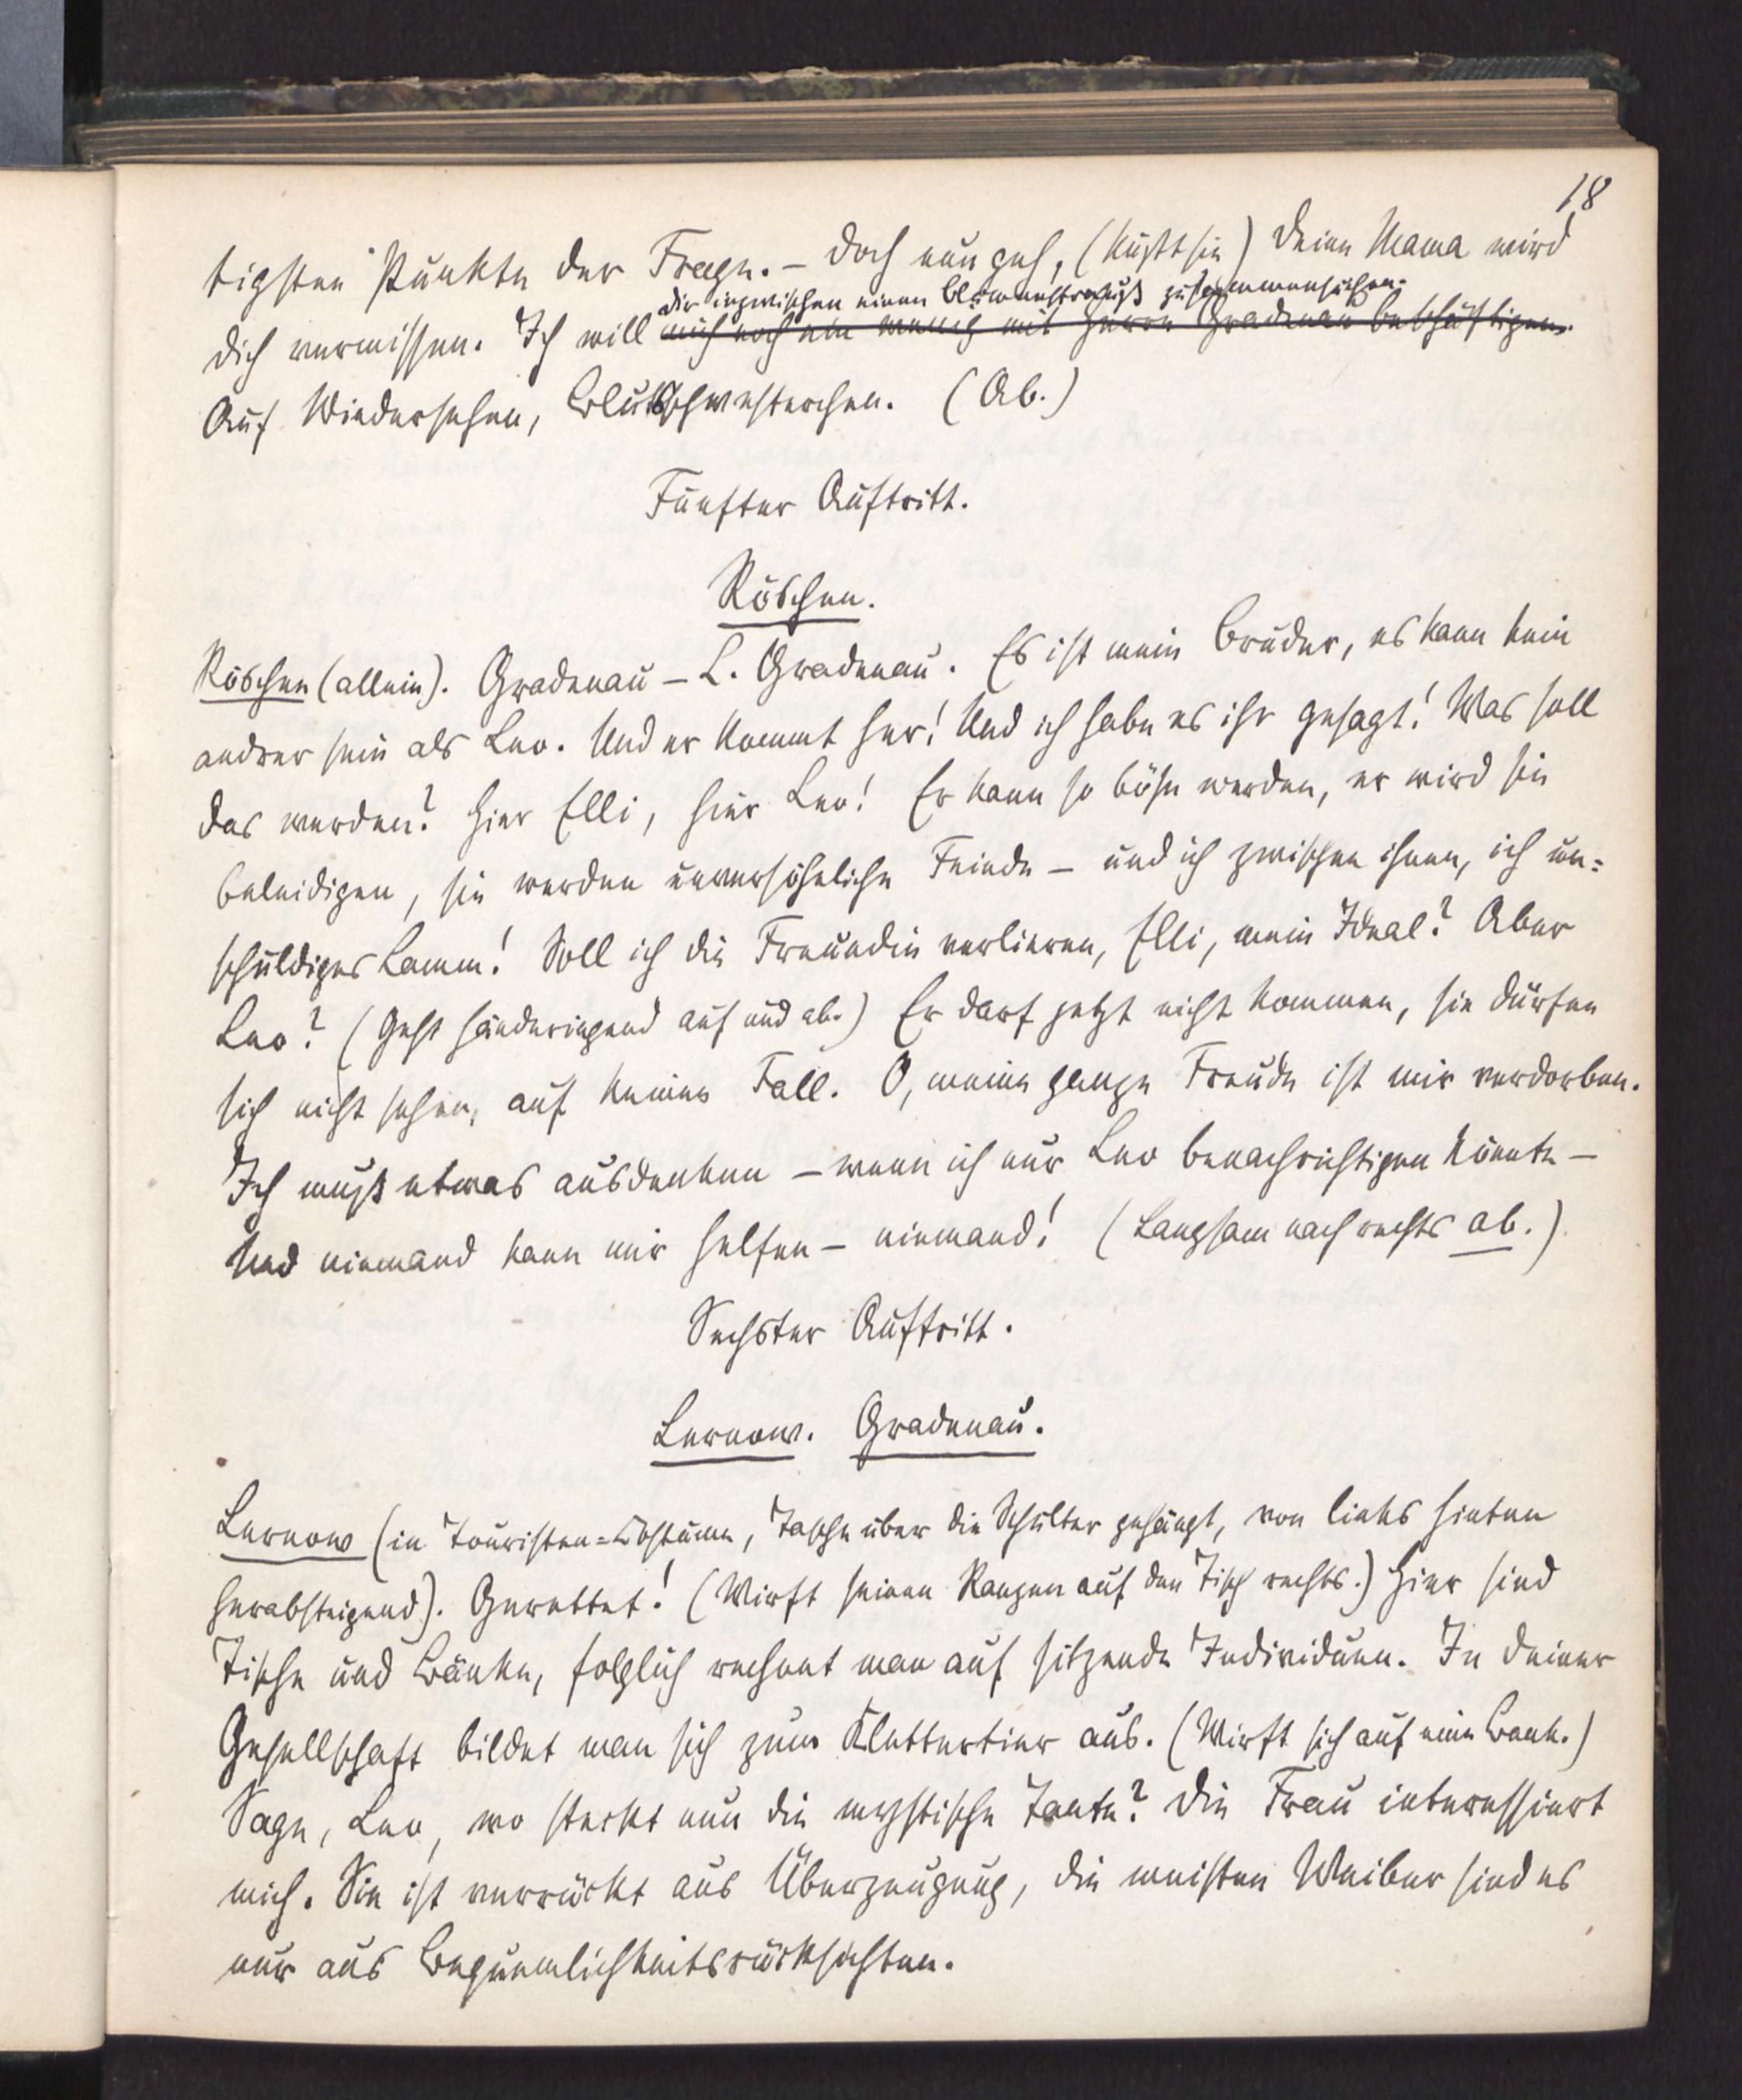 18
tigsten Punkte der Frage. – Doch nun geh, (küßt sie) Deine Mama wird
dir inzwischen einen Blumenstrauß zusammensuchen.
dich vermissen. Ich will mich noch ein wenig mit Herrn Gradenau beschäftigen.
Auf Wiedersehen, Blutsschwesterchen. (Ab.)
Fünfter Auftritt.
Röschen.
Röschen (allein). Gradenau – L. Gradenau. Es ist mein Bruder, es kann kein
andrer sein als Leo. Und er kommt her! Und ich habe es ihr gesagt! Was soll
das werden? Hier Elli, hier Leo! Er kann so böse werden, er wird sie
beleidigen, sie werden unversöhnliche Feinde – und ich zwischen ihnen, ich un=
schuldiges Lamm! Soll ich die Freundin verlieren, Elli, mein Ideal? Aber
Leo? (Geht händeringend auf und ab.) Er darf jetzt nicht kommen, sie dürfen
sich nicht sehen, auf keinen Fall. O, meine ganze Freude ist mir verdorben.
Ich muß etwas ausdenken – wenn ich nur Leo benachrichtigen könnte –
Und niemand kann mir helfen – niemand! (Langsam nach rechts ab.)
Sechster Auftritt.
Lernow. Gradenau.
Lernow (in Touristen=Costüme, Tasche über die Schulter gehängt, von links hinten
herabsteigend). Gerettet! (Wirft seinen Ranzen auf den Tisch rechts.) Hier sind
Tische und Bänke, folglich rechnet man auf sitzende Individuen. In deiner
Gesellschaft bildet man sich zum Klettertier aus. (Wirft sich auf eine Bank.)
Sage, Leo, wo steckt nun die mystische Tante? Die Frau interessiert
mich. Sie ist verrückt aus Überzeugung, die meisten Weiber sind es
nur aus Bequemlichkeitsrücksichten.